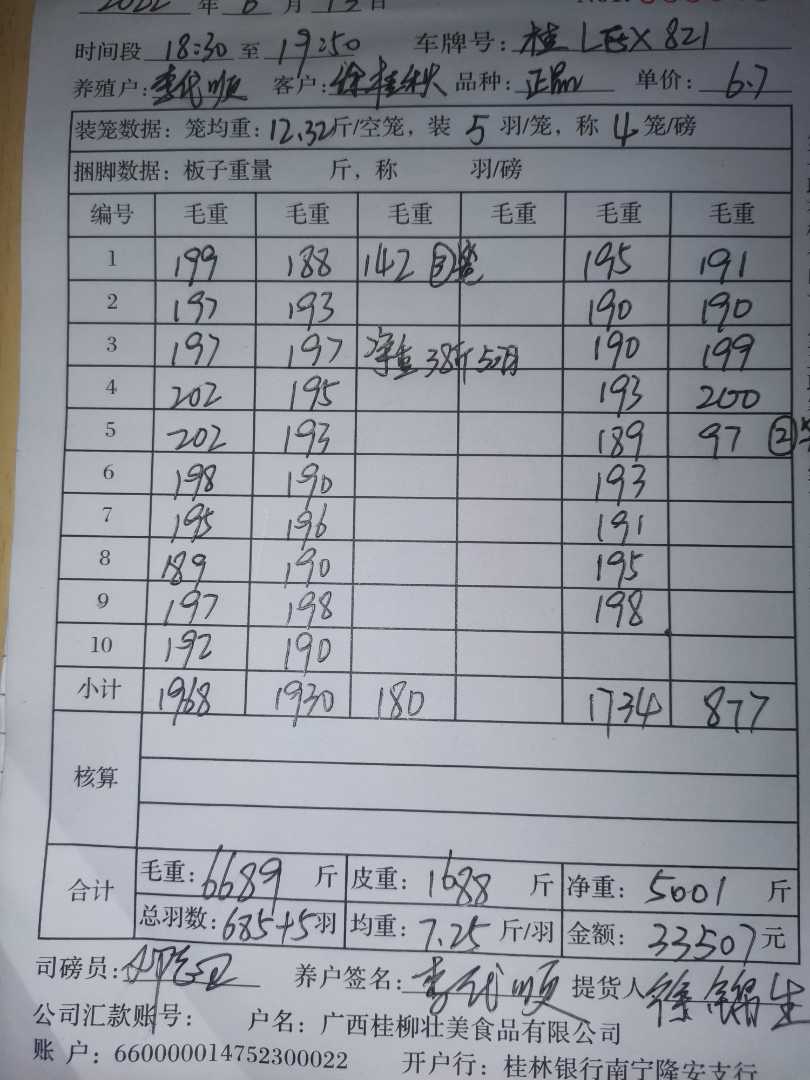 2022 年 6 月 13 日
时间段 18:30 至 19:50 车牌号: 桂 LEX 821
养殖户: 李代顺 客户: 徐桂秋 品种: 正品 单价: 6.7
装笼数据: 笼均重: 12.32斤/空笼, 装 5 羽/笼, 称 4 笼/磅
捆脚数据: 板子重量 斤, 称 羽/磅
编号 毛重 毛重 毛重 毛重 毛重 毛重
1 199 188 142 ③笼 195 191
2 197 193 190 190
3 197 197 净重 38斤 5羽 190 199
4 202 195 193 200
5 202 193 189 97 ②笼
6 198 190 193
7 195 196 191
8 189 190 195
9 197 198 198
10 192 190
小计 1968 1930 180 1734 877
核算
合计 毛重: 6689 斤 皮重: 1688 斤 净重: 5001 斤
总羽数: 685+5羽 均重: 7.25 斤/羽 金额: 33507元
司磅员: 养户签名: 李代顺 提货人 徐锦生
公司汇款账号: 户名: 广西桂柳壮美食品有限公司
账 户: 660000014752300022 开户行: 桂林银行南宁隆安支行